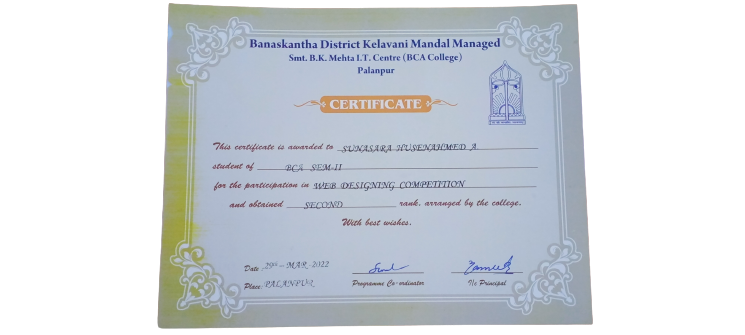 Banaskantha District Kelavani Mandal Managed
Smt. B.K. Mehta I.T. Centre (BCA College)
Palanpur
CERTIFICATE
This certificate is awarded to SUNASARA HUSENAHMED A
student of BCA SEM-II
for the participation in WEB DESIGNING COMPETITION
and obtained SECOND rank, arranged by the college.
With best wishes.
Date : 29th - MAR - 2022
Place: PALANPUR
Programme Co-ordinator
I/c Principal